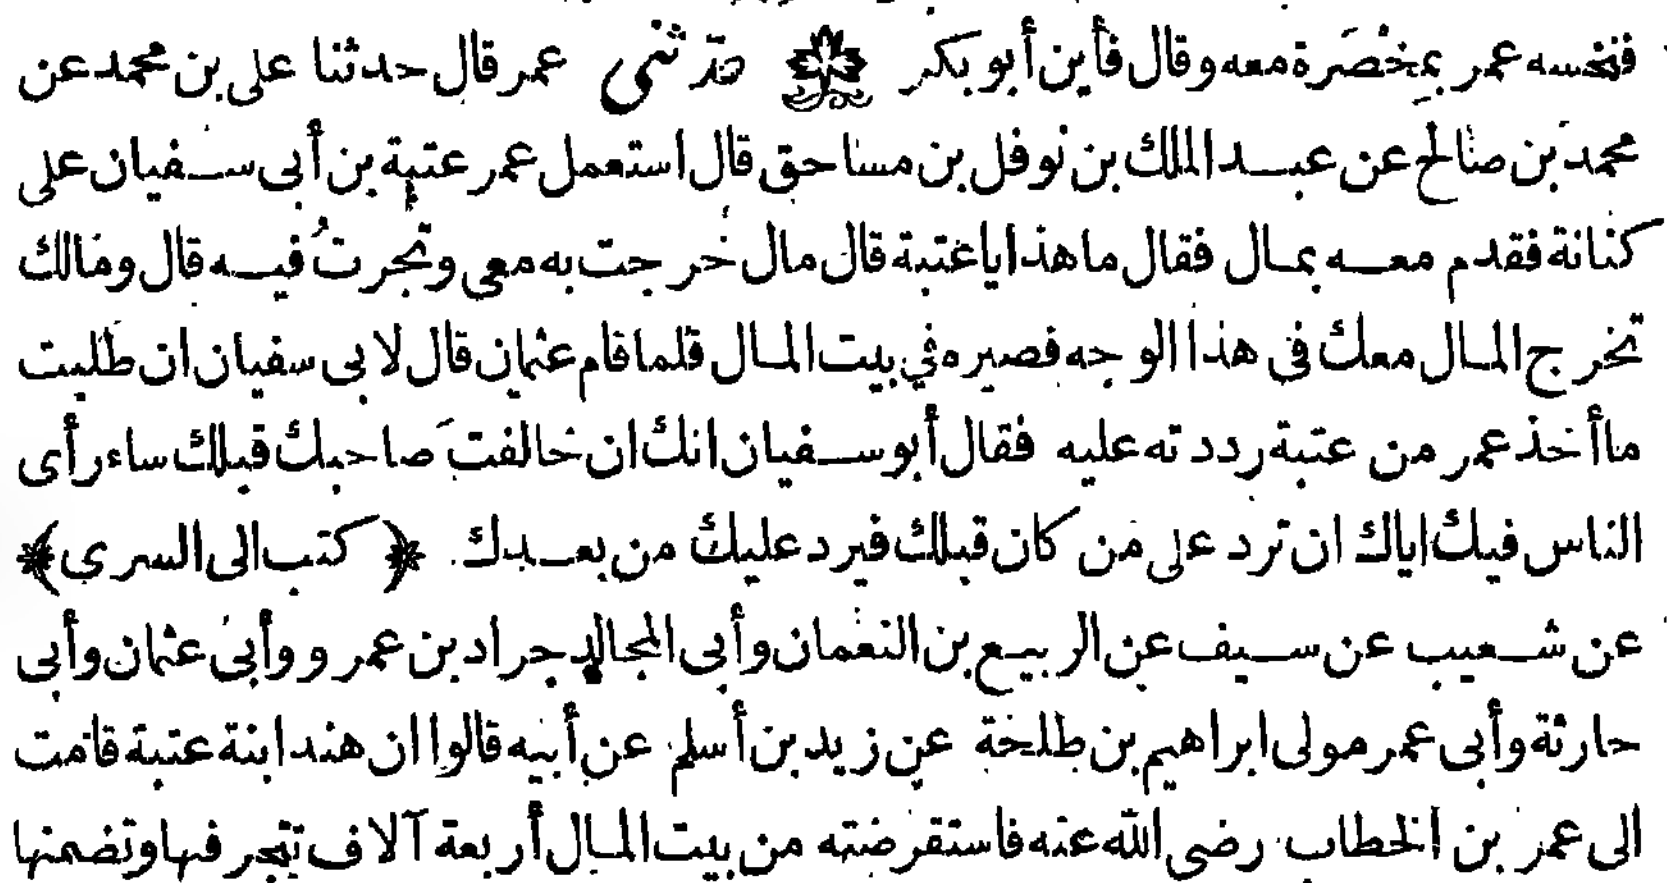 فنخسه عمر بمِخْصَرة معه وقال فأين أبو بكر حدّثنى عمر قال حدثنا على بن محمد عن
محمد بن صالح عن عبد الملك بن نوفل بن مساحق قال استعمل عمر عتبة بن أبى سفيان على
كنانة فقدم معه بمال فقال ما هذا يا عتبة قال مال خرجت به معى وتجرتُ فيه قال ومالك
تخرج المال معك فى هذا الوجه فصيره في بيت المال فلما قام عثمان قال لابى سفيان ان طلبت
ما أخذ عمر من عتبة رددته عليه فقال أبو سفيان انك ان خالفتَ صاحبك قبلك ساء رأى
الناس فيك اياك ان ترد على من كان قبلك فيرد عليك من بعدك. ﴿كتب الى السرى﴾
عن شعيب عن سيف عن الربيع بن النعمان وأبى المجالد جراد بن عمرو وأبى عثمان وأبى
حارثة وأبى عمر مولى ابراهيم بن طلحة عن زيد بن أسلم عن أبيه قالوا ان هند ابنة عتبة قامت
الى عمر بن الخطاب رضى الله عنه فاستقرضته من بيت المال أربعة آلاف تتجر فيها وتضمنها